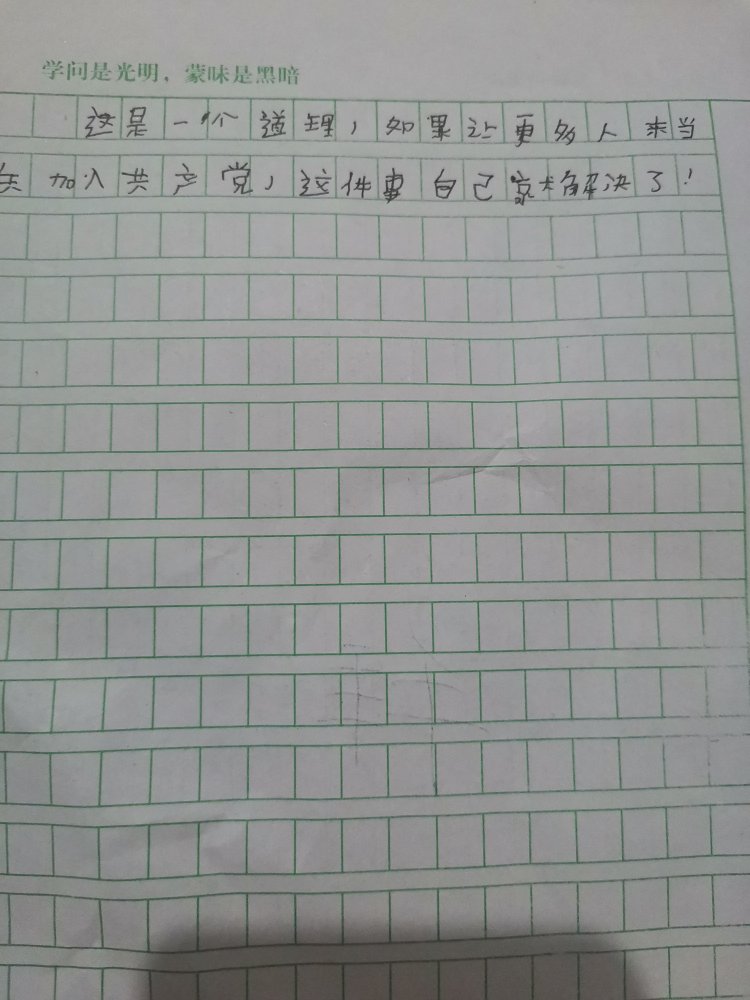 学问是光明，蒙昧是黑暗
这是一个道理，如果让更多人来当
加入共产党，这件事自己就解决了！